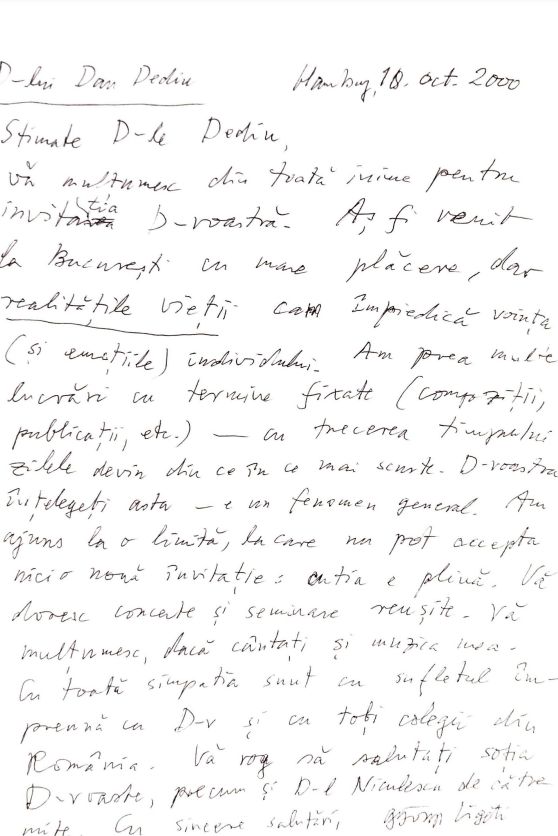 D-lui Dan Dediu Hamburg, 10. oct. 2000
Stimate D-le Dediu,
vă mulțumesc din toată inima pentru
invitația D-voastră. Aș fi venit
la București cu mare plăcere, dar
realitățile vieții cam împiedică voința
(și emoțiile) individului. Am prea multe
lucrări cu termine fixate (compoziții,
publicații, etc.) — cu trecerea timpului
zilele devin din ce în ce mai scurte. D-voastra
înțelegeți asta — e un fenomen general. Am
ajuns la o limită, la care nu pot accepta
nici o nouă invitație: cutia e plină. Vă
doresc concerte și seminare reușite. Vă
mulțumesc, dacă cântați și muzica mea.
Cu toată simpatia sunt cu sufletul îm-
preună cu D-v și cu toți colegii din
România. Vă rog să salutați soția
D-voastre, precum și D-l Niculescu de către
mine. Cu sincere salutări, György Ligeti